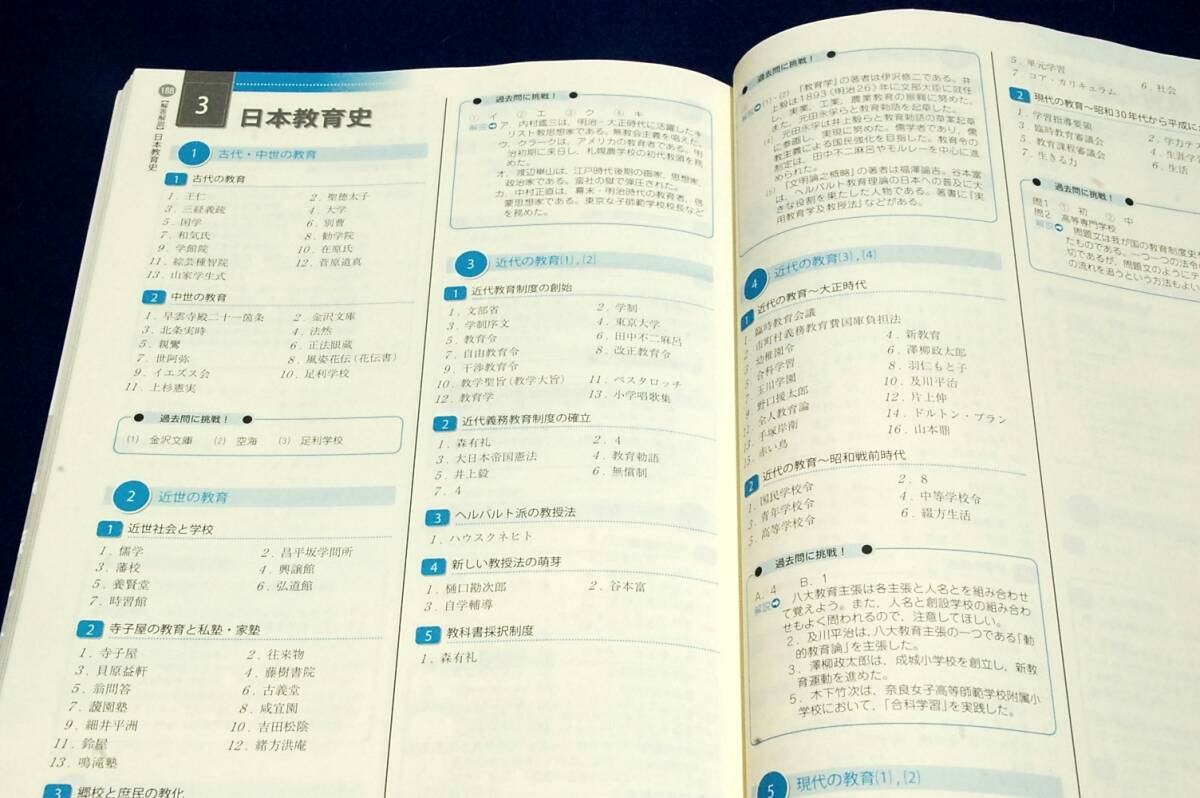 188
【解答解説】日本教育史
3 日本教育史
1 古代・中世の教育
1 古代の教育
1．王仁 2．聖徳太子
3．三経義疏 4．大学
5．国学 6．別曹
7．和気氏 8．勧学院
9．学館院 10．在原氏
11．綜芸種智院 12．菅原道真
13．山家学生式
2 中世の教育
1．早雲寺殿二十一箇条 2．金沢文庫
3．北条実時 4．法然
5．親鸞 6．正法眼蔵
7．世阿弥 8．風姿花伝（花伝書）
9．イエズス会 10．足利学校
11．上杉憲実
過去問に挑戦！
(1) 金沢文庫 (2) 空海 (3) 足利学校
2 近世の教育
1 近世社会と学校
1．儒学 2．昌平坂学問所
3．藩校 4．興譲館
5．養賢堂 6．弘道館
7．時習館
2 寺子屋の教育と私塾・家塾
1．寺子屋 2．往来物
3．貝原益軒 4．藤樹書院
5．翁問答 6．古義堂
7．蘐園塾 8．咸宜園
9．細井平洲 10．吉田松陰
11．鈴屋 12．緒方洪庵
13．鳴滝塾
3 郷校と庶民の教化
過去問に挑戦！
① イ ② エ ③ ク ④ キ
解説 ア．内村鑑三は、明治・大正時代に活躍したキ
リスト教思想家である。無教会主義を唱えた。
ウ．クラークは、アメリカの教育者である。明
治初期に来日し、札幌農学校の初代教頭を務
めた。
オ．渡辺崋山は、江戸時代後期の画家、思想家、
政治家である。蛮社の獄で弾圧された。
カ．中村正直は、幕末・明治時代の教育者、啓
蒙思想家である。東京女子師範学校校長など
を務めた。
3 近代の教育(1)，(2)
1 近代教育制度の創始
1．文部省 2．学制
3．学制序文 4．東京大学
5．教育令 6．田中不二麻呂
7．自由教育令 8．改正教育令
9．干渉教育令
10．教学聖旨（教学大旨） 11．ペスタロッチ
12．教育学 13．小学唱歌集
2 近代義務教育制度の確立
1．森有礼 2．4
3．大日本帝国憲法 4．教育勅語
5．井上毅 6．無償制
7．4
3 ヘルバルト派の教授法
1．ハウスクネヒト
4 新しい教授法の萌芽
1．樋口勘次郎 2．谷本富
3．自学輔導
5 教科書採択制度
1．森有礼
過去問に挑戦！
解説 (1)・(2) 『教育学』の著者は伊沢修二である。井
上毅は1893（明治26）年に文部大臣に就任
し、実業、工業、農業教育の振興に努めた。
また、元田永孚らと教育勅語を起草した。
(4) 元田永孚は井上毅らと教育勅語の草案起草
に参画し、実現に努めた。儒学者であり、儒
教主義による国民強化を目指した。教育令の
制定は、田中不二麻呂やモルレーを中心に進
められた。
(5) 『文明論之概略』の著者は福澤諭吉。谷本富
は、ヘルバルト教育理論の日本への普及に大
きな役割を果たした人物である。著書に『実
用教育学及教授法』などがある。
4 近代の教育(3)，(4)
1 近代の教育～大正時代
1．臨時教育会議
2．市町村義務教育費国庫負担法
3．幼稚園令 4．新教育
5．合科学習 6．澤柳政太郎
7．玉川学園 8．羽仁もと子
9．野口援太郎 10．及川平治
11．全人教育論 12．片上伸
13．手塚岸衛 14．ドルトン・プラン
15．赤い鳥 16．山本鼎
2 近代の教育～昭和戦前時代
1．国民学校令 2．8
3．青年学校令 4．中等学校令
5．高等学校令 6．綴方生活
過去問に挑戦！
A．4 B．1
解説 八大教育主張は各主張と人名とを組み合わせ
て覚えよう。また、人名と創設学校の組み合わ
せもよく問われるので、注意してほしい。
2．及川平治は、八大教育主張の一つである「動
的教育論」を主張した。
3．澤柳政太郎は、成城小学校を創立し、新教
育運動を進めた。
5．木下竹次は、奈良女子高等師範学校附属小
学校において、「合科学習」を実践した。
5 現代の教育(1)，(2)
5．単元学習 6．社会
7．コア・カリキュラム
2 現代の教育～昭和30年代から平成に
1．学習指導要領 2．学力テ
3．臨時教育審議会 4．生涯学
5．教育課程審議会 6．生活
7．生きる力
過去問に挑戦！
問1 ① 初 ② 中
問2 高等専門学校
解説 問題文は我が国の教育制度史
たものである。一つ一つの法令
切であるが、問題文のようにテ
の流れを追うという方法もよい